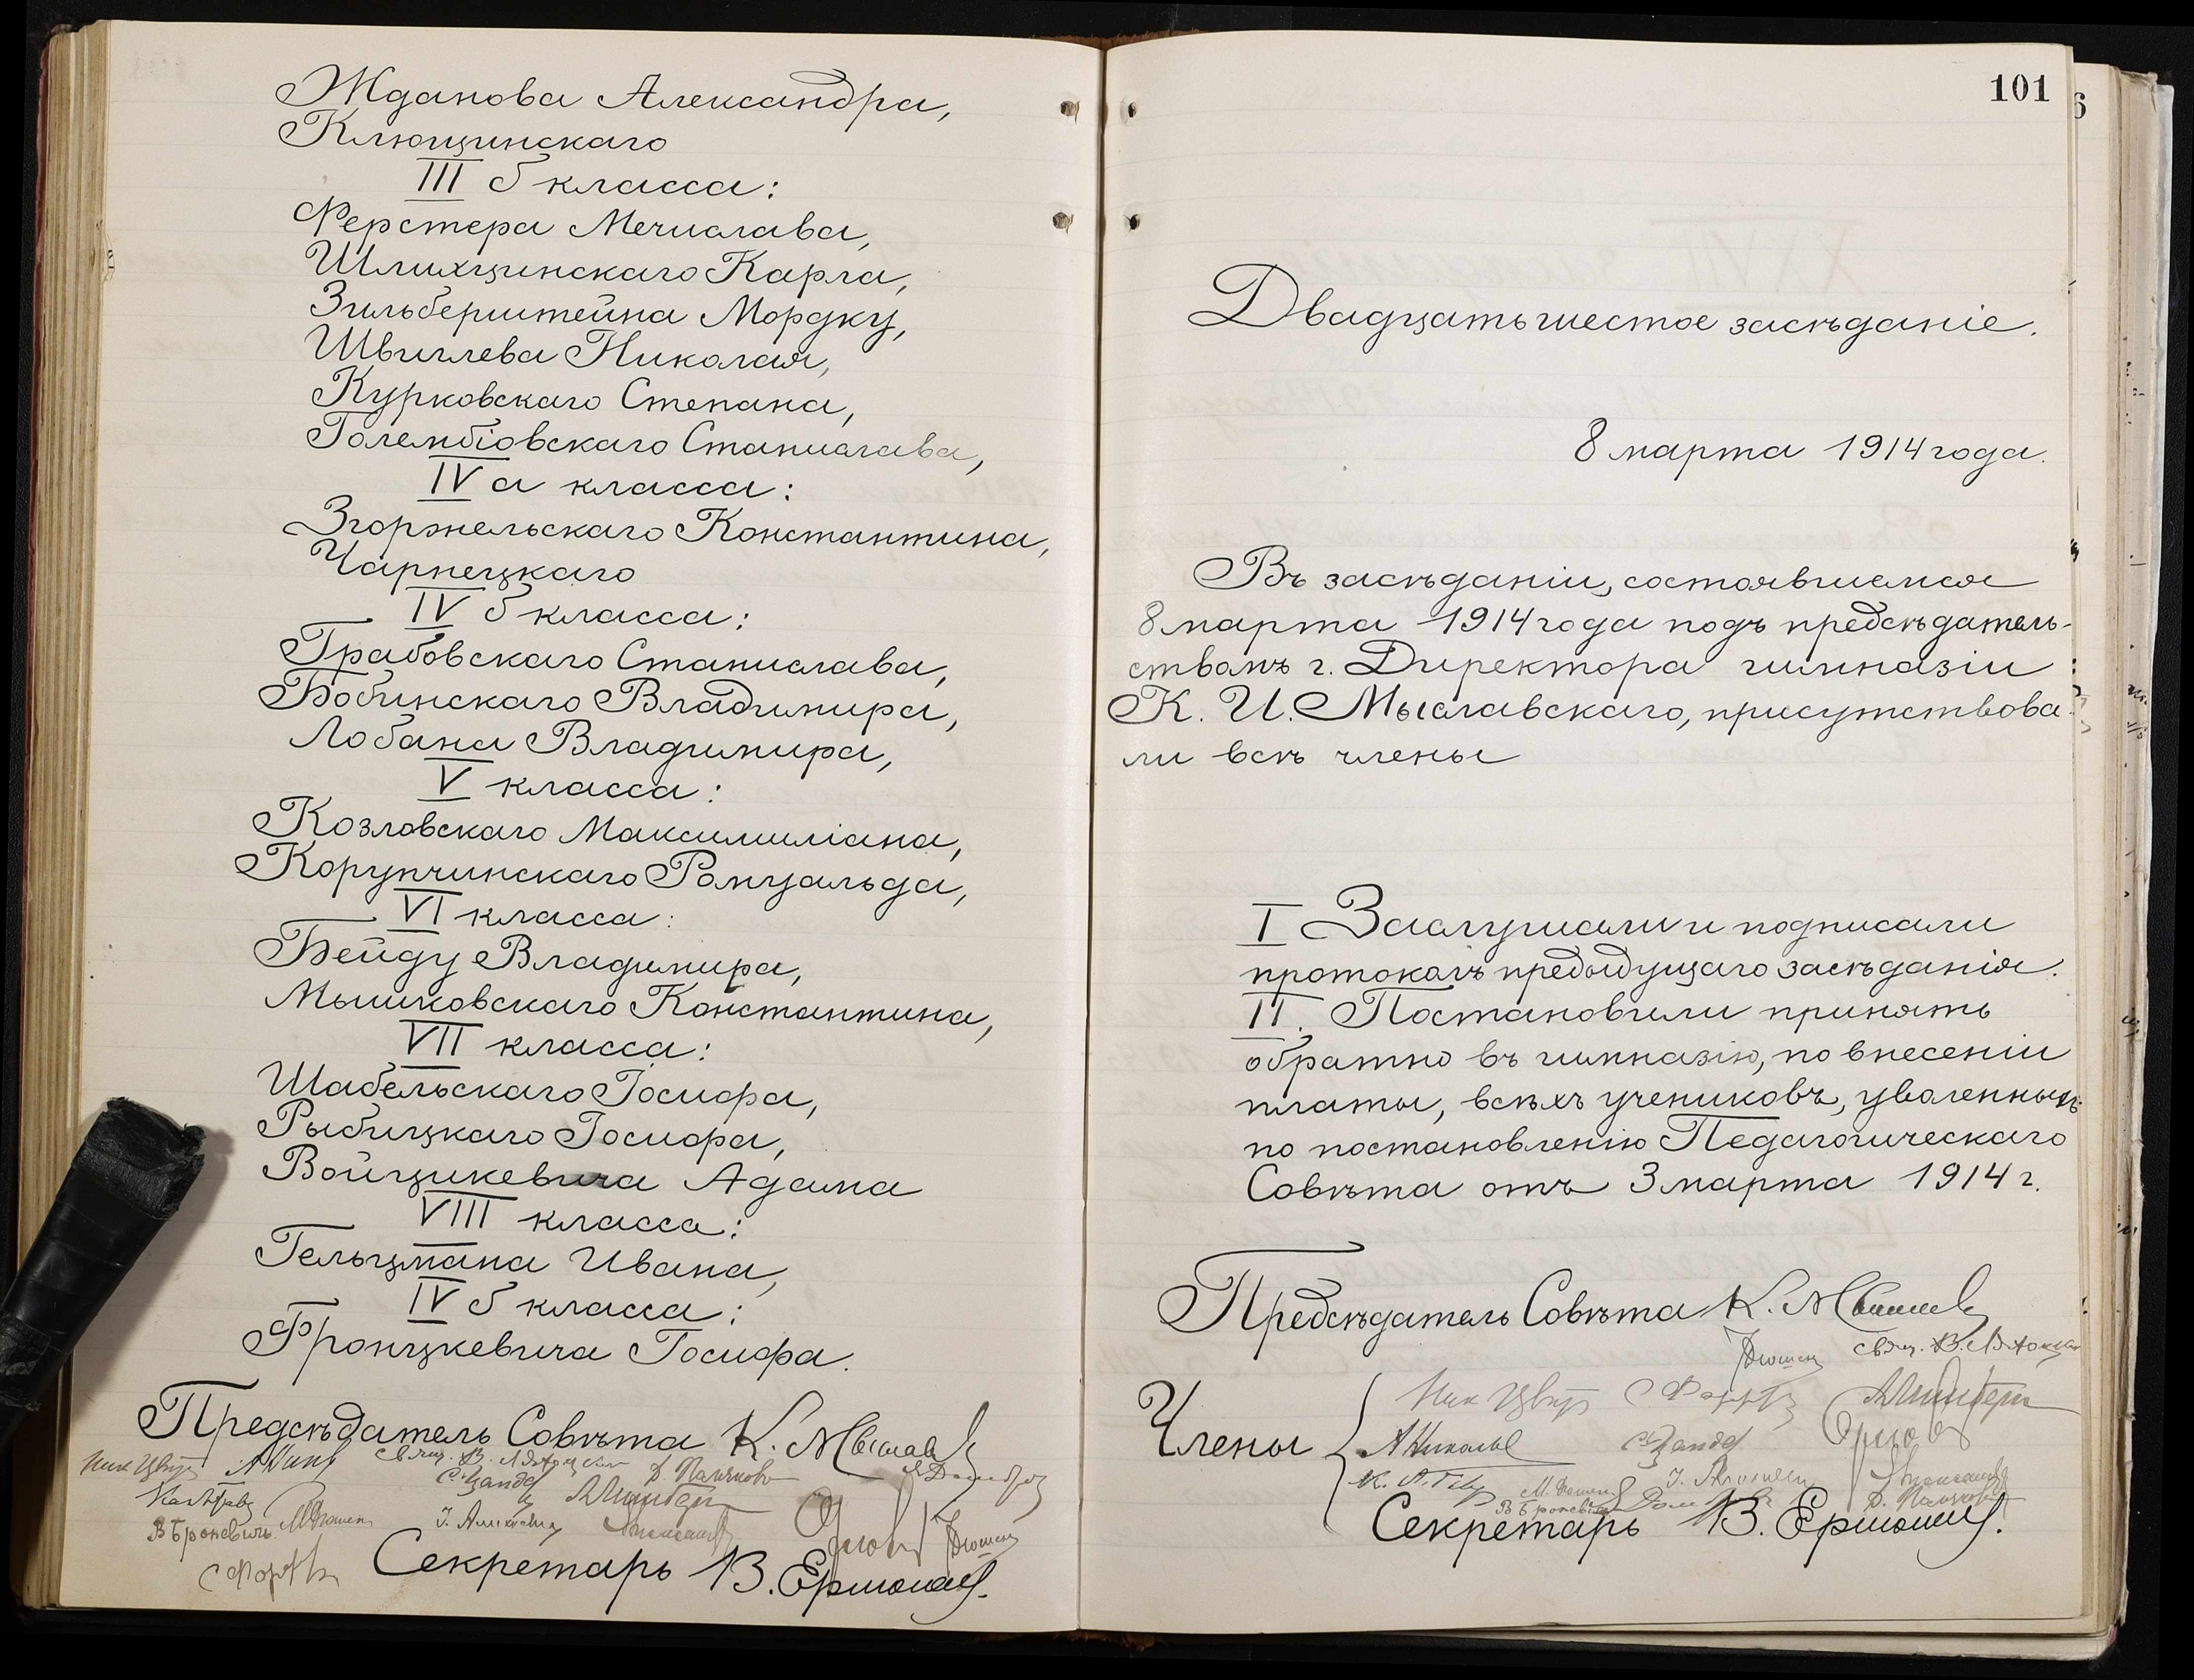 Жданова Александра,
Клющинскаго
III б класса:
Ферстера Мечислава,
Шлихцинскаго Карла,
Зильберштейна Мордку,
Швылева Николая,
Курковскаго Степана,
Голембіовскаго Станислава,
IV а класса:
Згоржельскаго Константина,
Чарнецкаго
IV б класса:
Грабовскаго Станислава,
Бобинскаго Владимира,
Лобана Владимира,
V класса:
Козловскаго Максимиліана,
Корупчинскаго Ромуальда,
VI класса:
Бейду Владимира,
Мышковскаго Константина,
VII класса:
Шабельскаго Іосифа,
Рыбицкаго Іосифа,
Войцикевича Адама
VIII класса:
Гельцмана Ивана,
IV б класса:
Фронцкевича Іосифа.
Предсѣдатель Совѣта К. Мыслав
В Броневичъ
Секретарь В. Ермолаев.
101
Двадцать шестое засѣданіе.
8 марта 1914 года.
Въ засѣданіи, состоявшемся
8 марта 1914 года подъ предсѣдатель-
ствомъ г. Директора гимназіи
К. И. Мыславскаго, присутствова-
ли всѣ члены
I Заслушали и подписали
протоколъ предыдущаго засѣданія.
II. Постановили принять
обратно въ гимназію, по внесеніи
платы, всѣхъ учениковъ, уволенныхъ
по постановленію Педагогическаго
Совѣта отъ 3 марта 1914 г.
Предсѣдатель Совѣта К.
Члены
Секретарь В.